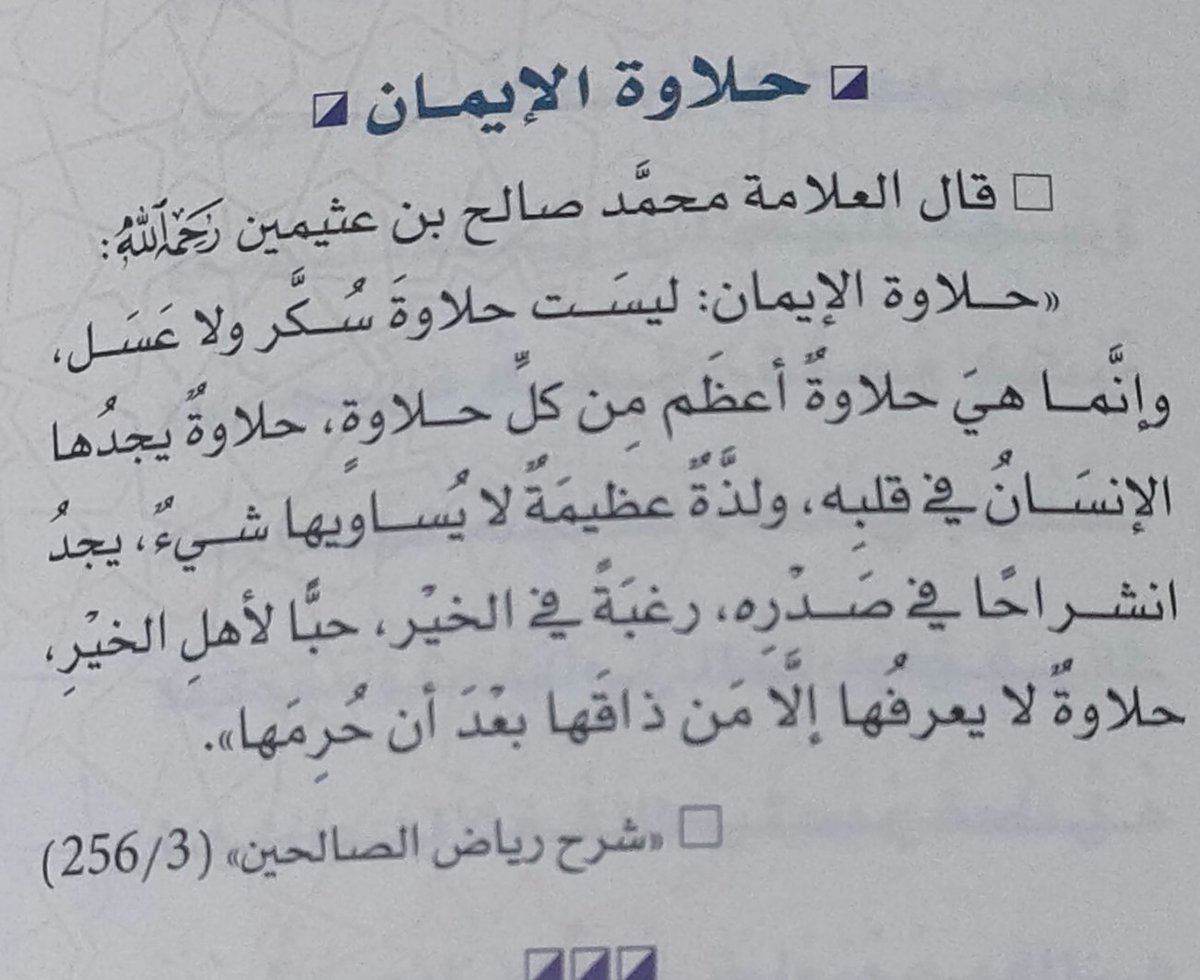 حلاوة الإيمان
قال العلامة محمَّد صالح بن عثيمين رَحِمَهُ اللَّهُ:
«حلاوة الإيمان: ليسَت حلاوةَ سُكَّر ولا عَسَل،
وإنَّما هيَ حلاوةٌ أعظَم مِن كلِّ حلاوةٍ، حلاوةٌ يجدُها
الإنسَانُ في قلبِه، ولذَّةٌ عظيمَةٌ لا يُساويها شيءٌ، يجدُ
انشراحًا في صَدْرِه، رغبَةً في الخيْر، حبًّا لأهلِ الخيْرِ،
حلاوةٌ لا يعرفُها إلَّا مَن ذاقَها بعْدَ أن حُرِمَها».
«شرح رياض الصالحين» (256/3)